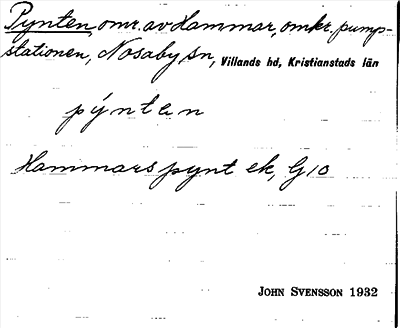 Pynten, omr. av Hammar, omkr. pump-
stationen, Nosaby sn, Villands hd, Kristianstads län
pýntɛn
Hammars pynt ek, G10
JOHN SVENSSON 1932